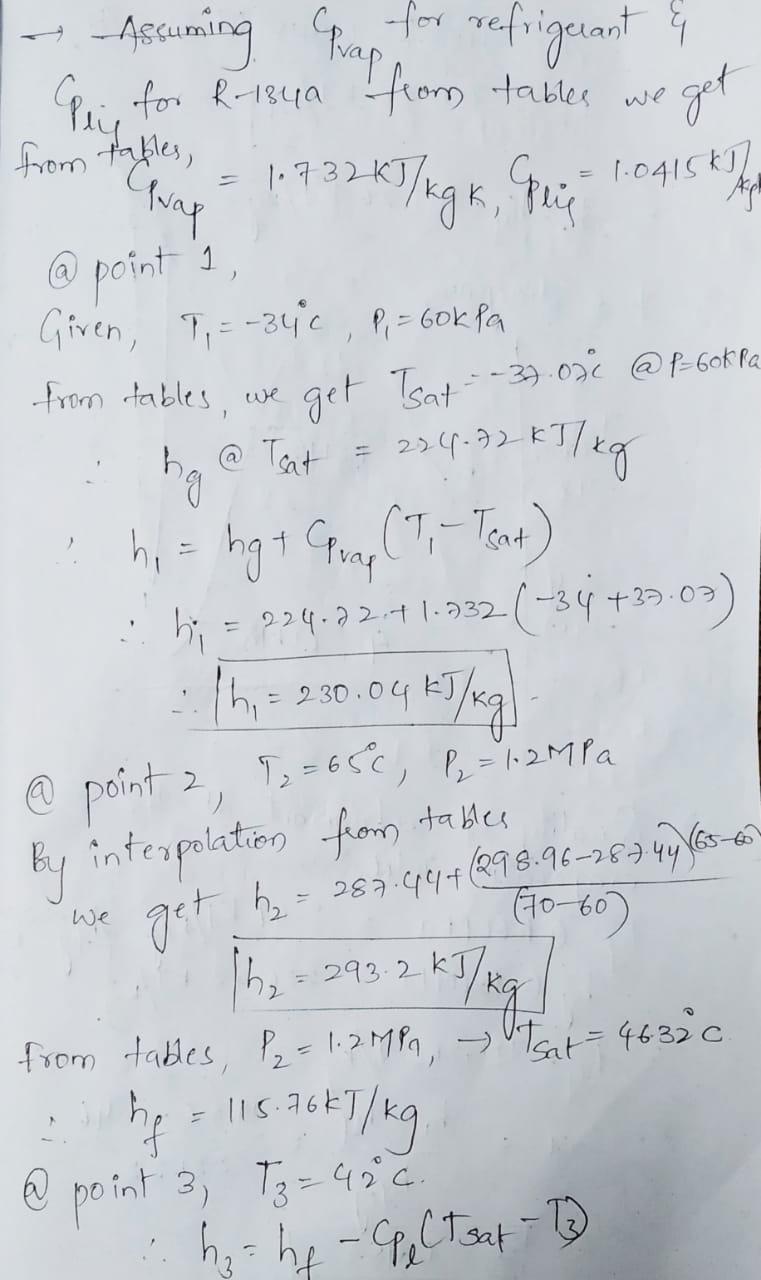 → Assuming Cpvap for refrigerant &
Cpliq for R-134a from tables we get
from tables,
Cpvap = 1.732 KJ/kg K, Cpliq = 1.0415 kJ/kgK
@ point 1,
Given, T1 = -34°C, P1 = 60kPa
from tables, we get Tsat = -37.07°C @ P=60kPa
∴ hg @ Tsat = 224.72 KJ/kg
∴ h1 = hg + Cpvap (T1 - Tsat)
∴ h1 = 224.72 + 1.732 (-34 + 37.07)
∴ h1 = 230.04 KJ/kg
@ point 2, T2 = 65°C, P2 = 1.2MPa
By interpolation from tables
we get h2 = 287.44 + (298.96-287.44)(65-60)/(70-60)
h2 = 293.2 KJ/kg
from tables, P2 = 1.2MPa, → Tsat = 46.32°C
∴ hf = 115.76KJ/kg
@ point 3, T3 = 42°C.
∴ h3 = hf - Cpl (Tsat - T3)